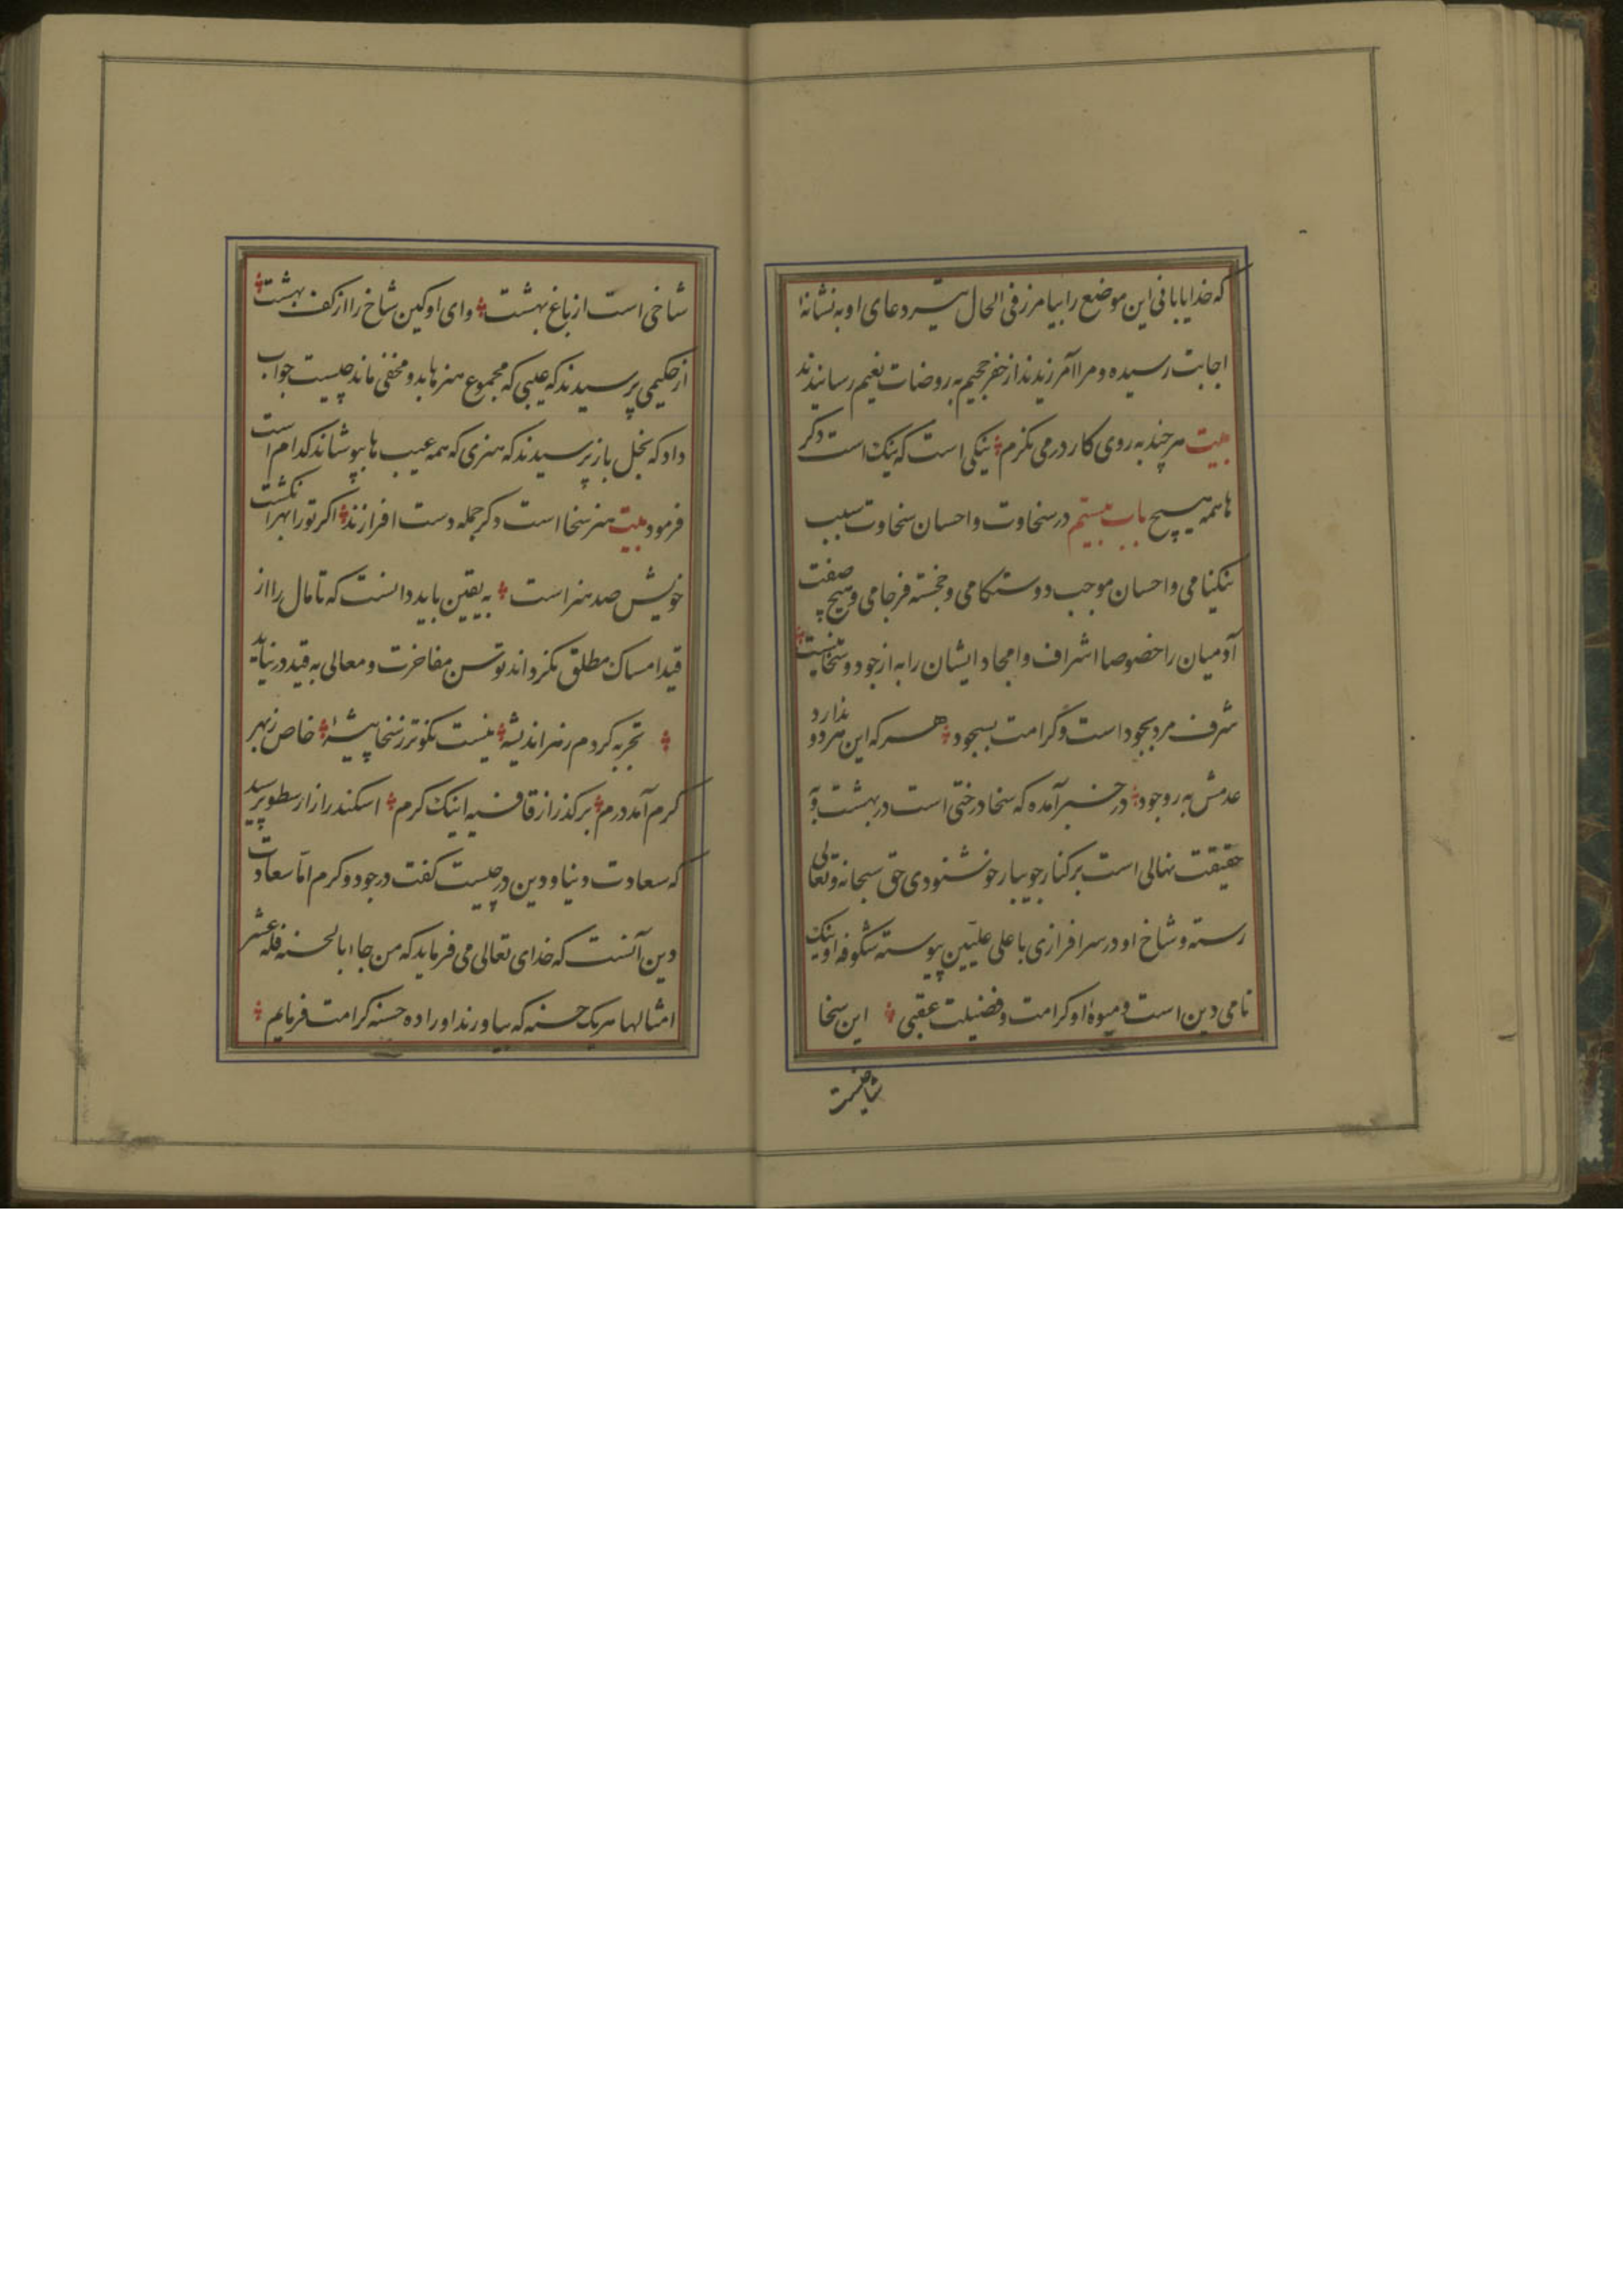 که خدایا بانی این موضع را بیامرز فی الحال تیر دعای او به نشانه
اجابت رسیده و مرا آمرزیدند از حفر جحیم به روضات نعیم رسانیدند
بیت هر چند به روی کار در می نگرم نیکی است که نیک است دکر
ها همه هیچ باب بیستم در سخاوت و احسان سخاوت سبب
نیکنامی و احسان موجب دوستکامی و خجسته فرجامی و هیچ صفت
آدمیان را خصوصا اشراف و امجاد ایشان را به از جود و سخا نیست
شرف مرد بجود است و کرامت بسجود هر که این هر دو ندارد
عدمش به ز وجود در خبر آمده که سخا درختی است در بهشت و به
حقیقت نهالی است بر کنار جویبار خوشنودی حق سبحانه و تعالی
رسته و شاخ او در سرافرازی با علی علیین پیوسته شکوفه او نیک
نامی دین است و میوه او کرامت و فضیلت عقبی این سخا
شاخیست
شاخی است از باغ بهشت وای او کین شاخ را از کف بهشت
از حکیمی پرسیدند که عیبی که مجموع هنرها بدو مخفی ماند چیست جواب
داد که بخل باز پرسیدند که هنری که همه عیب ها بپوشاند کدام است
فرمود بیت هنر سخا است دکر جمله دست افرازند اکر تو را بهر انکشت
خویش صد هنر است به یقین باید دانست که تا مال را از
قید امساک مطلق نکرداند توسن مفاخرت و معالی به قید در نیاید
تجربه کردم ز هر اندیشه نیست نکوتر ز سخا پیشهٔ خاص ز بهر
کرم آمد درم بر کذر از قافیه اینک کرم اسکندر از ارسطو پرسید
که سعادت دنیا و دین در چیست کفت در جود و کرم اما سعادت
دین آنست که خدای تعالی می فرماید که من جاء بالحسنه فله عشر
امثالها هر یک حسنه که بیاورند او را ده حسنه کرامت فرمایم